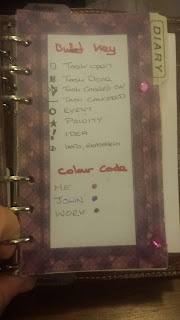 Bullet Key
Task Open
Task Done
Task Carried On
Task Cancelled
Event
Priority
Idea
Info,
Colour Code
Me
John
Work
DIARY